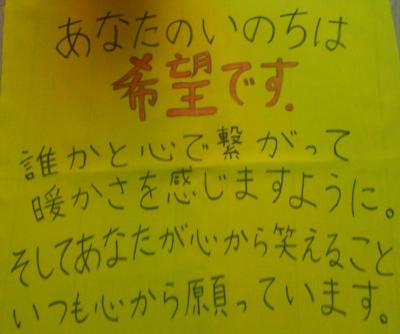 あなたのいのちは
希望です.
誰かと心で繋がって
暖かさを感じますように。
そしてあなたが心から笑えること
いつも心から願っています。